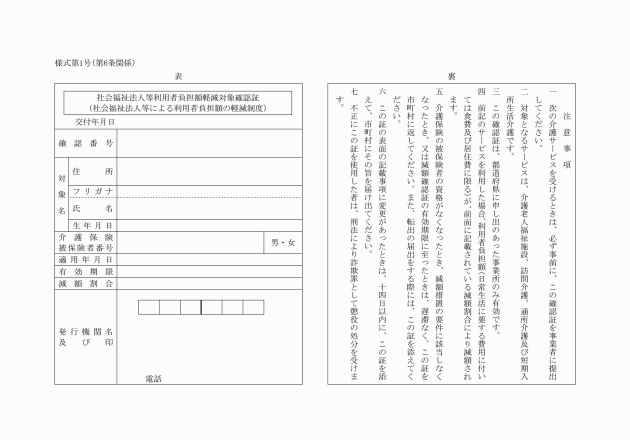 様式第1号(第6条関係)
表
社会福祉法人等利用者負担額軽減対象確認証
(社会福祉法人等による利用者負担額の軽減制度)
交付年月日
確認番号
対象名
住所
フリガナ
氏名
生年月日
介護保険
被保険者番号
男・女
適用年月日
有効期限
減額割合
発行機関名
及び印
電話
裏
注意事項
一 次の介護サービスを受けるときは、必ず事前に、この確認証を事業者に提出
してください。
二 対象となるサービスは、介護老人福祉施設、訪問介護、通所介護及び短期入
所生活介護です。
三 この確認証は、都道府県に申し出のあった事業所のみ有効です。
四 前記のサービスを利用した場合、利用者負担額(日常生活に要する費用に付い
ては食費及び居住費に限る)が、前面に記載されている減額割合により減額され
ます。
五 介護保険の被保険者の資格がなくなったとき、減額措置の要件に該当しなく
なったとき、又は減額確認証の有効期限に至ったときは、遅滞なく、この証を
市町村に返してください。また、転出の届出をする際には、この証を添えてく
ださい。
六 この証の表面の記載事項に変更があったときは、十四日以内に、この証を添
えて、市町村にその旨を届け出てください。
七 不正にこの証を使用した者は、刑法により詐欺罪として懲役の処分を受けま
す。